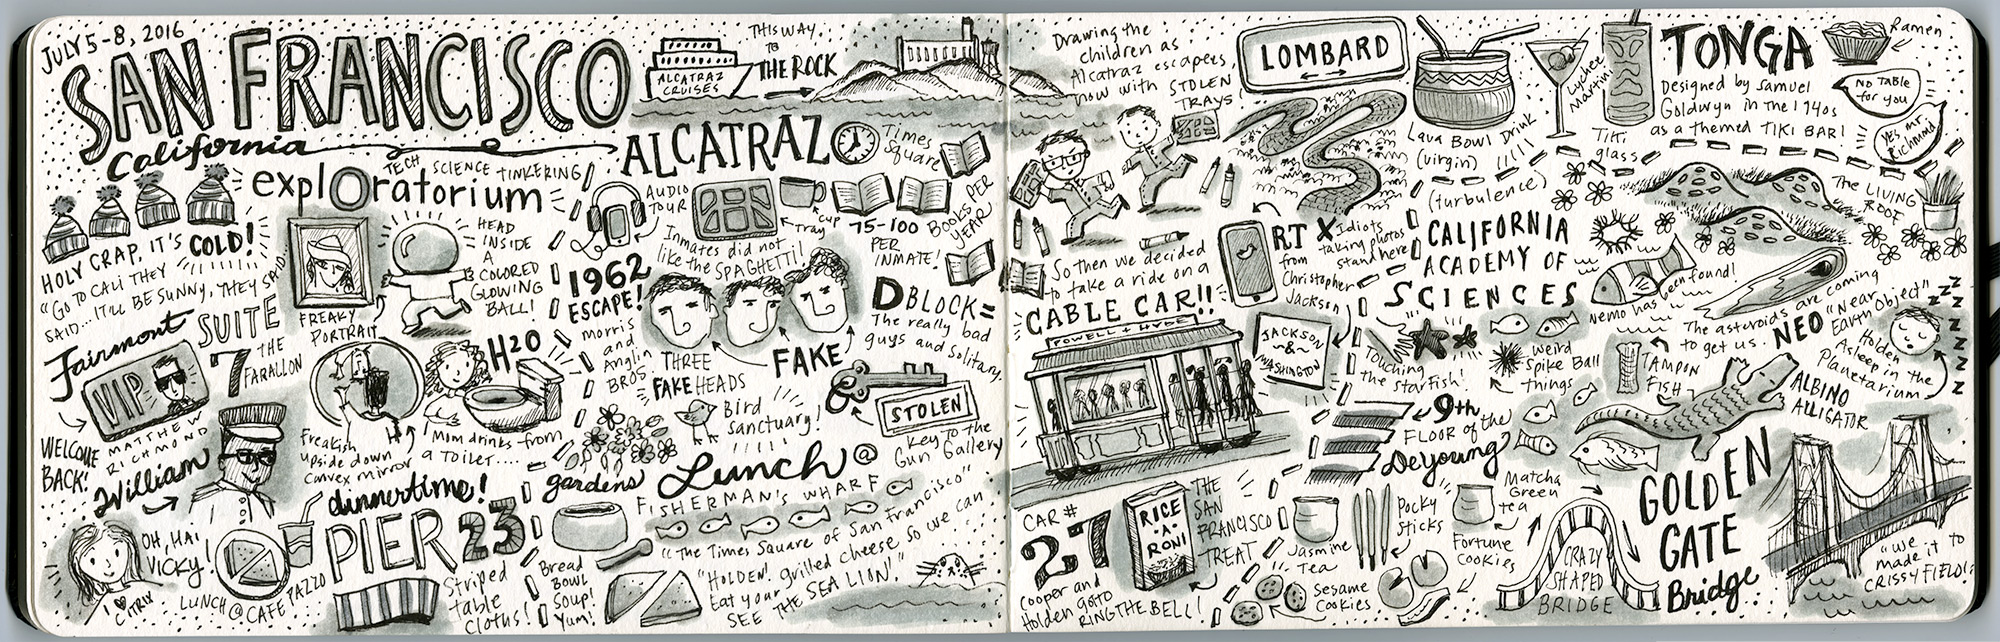 JULY 5-8, 2016
SAN FRANCISCO
California
HOLY CRAP, IT'S COLD!
"GO TO CALI THEY
SAID... IT'LL BE SUNNY, THEY SAID
Fairmont SUITE
VIP
MATTHEW
RICHMOND
7 THE
FARALLON
WELCOME
BACK!
William
OH, HAI
VICKY!
I ♥ CITRIX
LUNCH @ CAFE PAZZO
explOratorium
TECH SCIENCE TINKERING
FREAKY
PORTRAIT
HEAD
INSIDE
A
COLORED
GLOWING
BALL!
Freakish
upside down
convex mirror
H2O
Mim drinks from
a TOILET....
dinnertime!
PIER 23
Striped
table
cloths!
Bread
BOWL
Soup!
Yum!
ALCATRAZ
CRUISES
THIS WAY
TO
THE ROCK
ALCATRAZ
AUDIO
TOUR
tray
cup
Times
Square
75-100 BOOKS PER
YEAR
PER
INMATE!
Inmates did not
like the SPAGHETTI!
1962
ESCAPE!
morris
and
Anglin
BROS
THREE
FAKE HEADS
FAKE
D BLOCK =
The really bad
guys and solitary.
Bird
sanctuary!
gardens
STOLEN
Key to the
Gun Gallery
Lunch @
FISHERMAN'S WHARF
"The Times Square of San Francisco"
"HOLDEN! Eat your grilled cheese, so we can
SEE THE SEA LION!"
Drawing the
children as
Alcatraz escapees
now with STOLEN
TRAYS!
LOMBARD
So then we decided
to take a ride on a
CABLE CAR!!
POWELL + HYDE
RT
from
Christopher
Jackson
X Idiots
taking photos
stand here
JACKSON
&
WASHINGTON
CAR #
27
Cooper and
Holden got to
RING THE BELL!
RICE
A
RONI
THE
SAN
FRANCISCO
TREAT
Lava Bowl Drink
(virgin)
(turbulence)
Lychee
Martini
Tiki
glass
TONGA
Designed by Samuel
Goldwyn in the 1940s
as a themed TIKI BAR!
Ramen
No Table
for you
Yes, Mr.
Richmond
CALIFORNIA
ACADEMY OF
SCIENCES
The LIVING
ROOF
Nemo has been found!
The asteroids are coming
to get us. NEO "Near
Earth Object"
Holden
Asleep in the
Planetarium
Z Z Z Z Z Z Z
Touching
the starfish!
Weird
Spike Ball
things
TAMPON
FISH
ALBINO
ALLIGATOR
9th
FLOOR of the
Deyoung
Jasmine
Tea
Pocky
Sticks
Sesame
Cookies
Matcha
Green
tea
Fortune
Cookies
CRAZY
SHAPED
BRIDGE
GOLDEN
GATE
Bridge
"use made it to
CRISSY FIELD!"